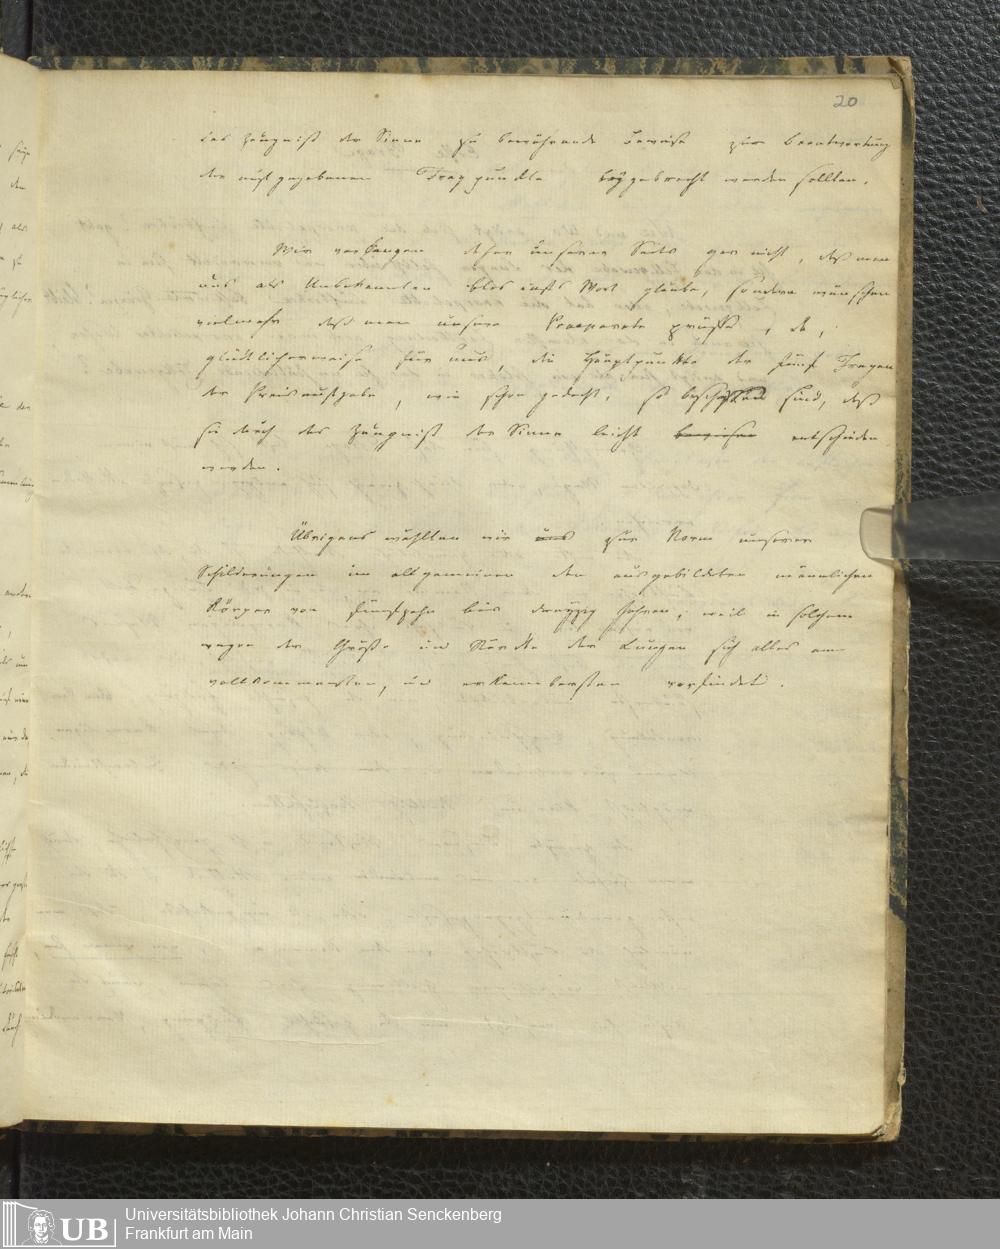 20
das Zeugniß der Sinne zu bewährende Beweise zur Beantwortung
der aufgegebenen Fragpunkte beygebracht werden sollten.
Wir verlangen daher unserer Seits gar nicht, daß man
uns als Unbekannten blos aufs Wort glaube, sondern wünschen
vielmehr daß man unsere Praeparate prüffe, da,
glücklicherweise für uns, die Hauptpunkte der fünf Fragen
der Preisaufgabe, wie schon gedacht, so beschaffen sind, daß
sie durch das Zeugniß der Sinne leicht bewiesen entschieden
werden.
Übrigens wählten wir uns zur Norm unserer
Schilderungen im allgemeinen den ausgebildeten männlichen
Körper von fünfzehn bis dreyzig Jahren, weil in solchem
wegen der Größe und Stärke der Lungen sich alles am
vollkommensten, und erkennbarsten vorfindet.
UB
Universitätsbibliothek Johann Christian Senckenberg
Frankfurt am Main